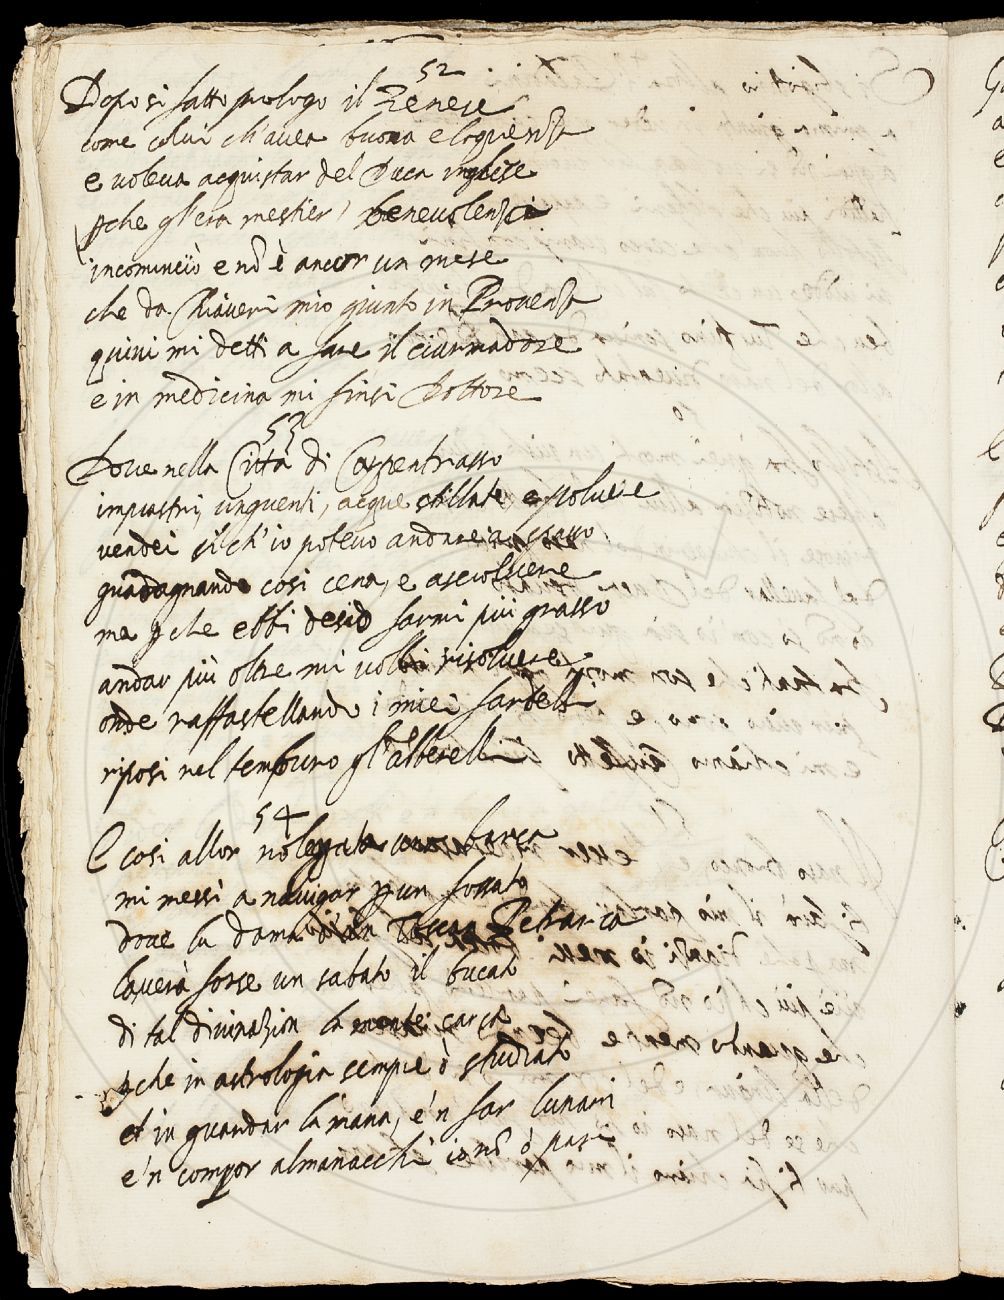 52
Dopo si fatto prologo il Zenese
come colui ch'auea buona eloquenza
e uoleua acquistar del Duca inglese
ꝑche gl'era mestier, beneuolenza
incominciò e nō è ancor un mese
che da Chiaueri mio giunto in Prouenza
quiui mi detti a fare il ciurmadore
e in medicina mi finsi Dottore
53
Doue nella Città di Carpentrasso
impiastri, unguenti, acque stillate, e poluere
vendei sì ch'io poteuo andare a spasso
guadagnando così cena, e ascioluere
ma ꝑche ebbi desio farmi più grasso
andar più oltre mi uolli risoluere
onde raffastellando i miei fardelli
riposi nel tamburo gl'alberelli
54
E così allor noleggiata una barca
mi messi a nauigar ꝑ un fossato
doue la dama Toscan Petrarca
lauerà forse un sabato il bucato
di tal diuinazion la mente carca
ꝑche in astrologia sempre ò studiato
et in guardar la mana, e'n far lunari
e'n compor almanacchi io nō ò pari